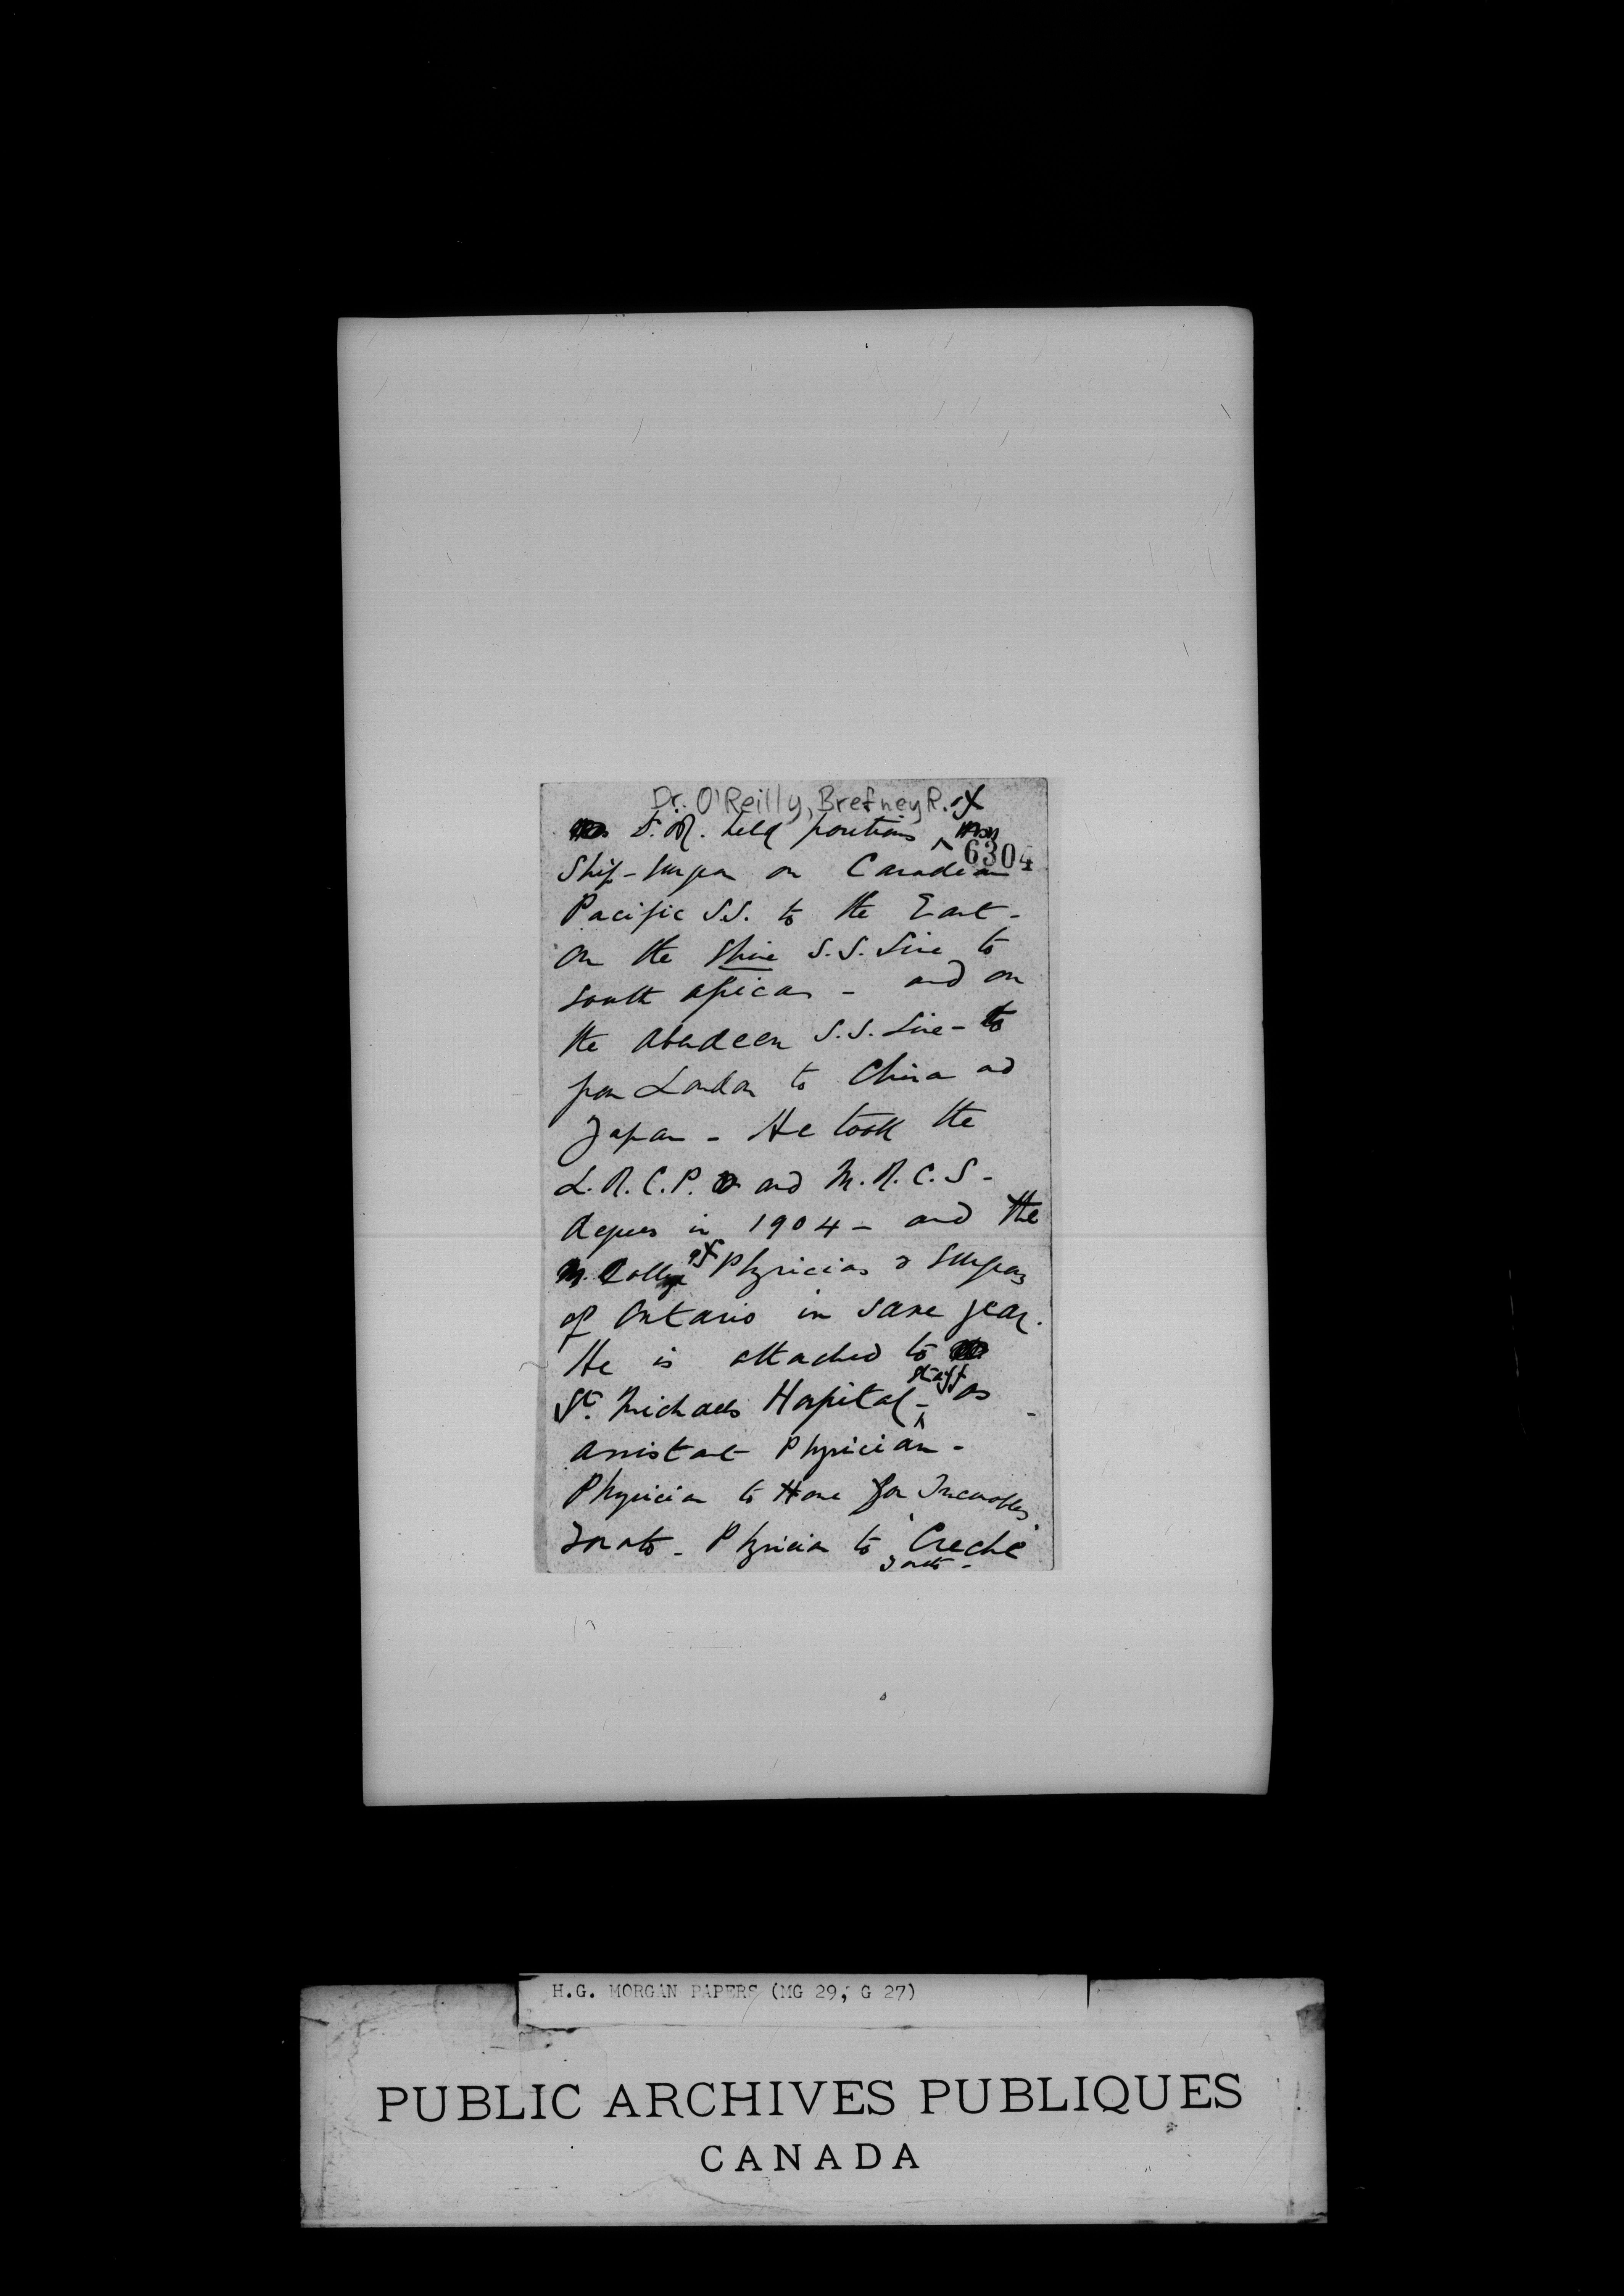 Dr. O'Reilly, Brefney R. of
Dr. O'R. held positions
6304
Ship-surgeon on Canadian
Pacific S.S. to the East -
on the Shire S.S. Line to
South African - and on
the Aberdeen S.S. Line -
from London to China and
Japan - He took the
L.R.C.P. and M.R.C.S -
degrees in 1904 - and the
M. College of Physicians & Surgeons
of Ontario in same year.
He is attached to
St. Michaels Hospital - staff as
assistant Physician -
Physician to Home for Incurables
Toronto - Physician to "Creche"
Toronto -
H.G. MORGAN PAPERS (MG 29, G 27)
PUBLIC ARCHIVES PUBLIQUES
CANADA